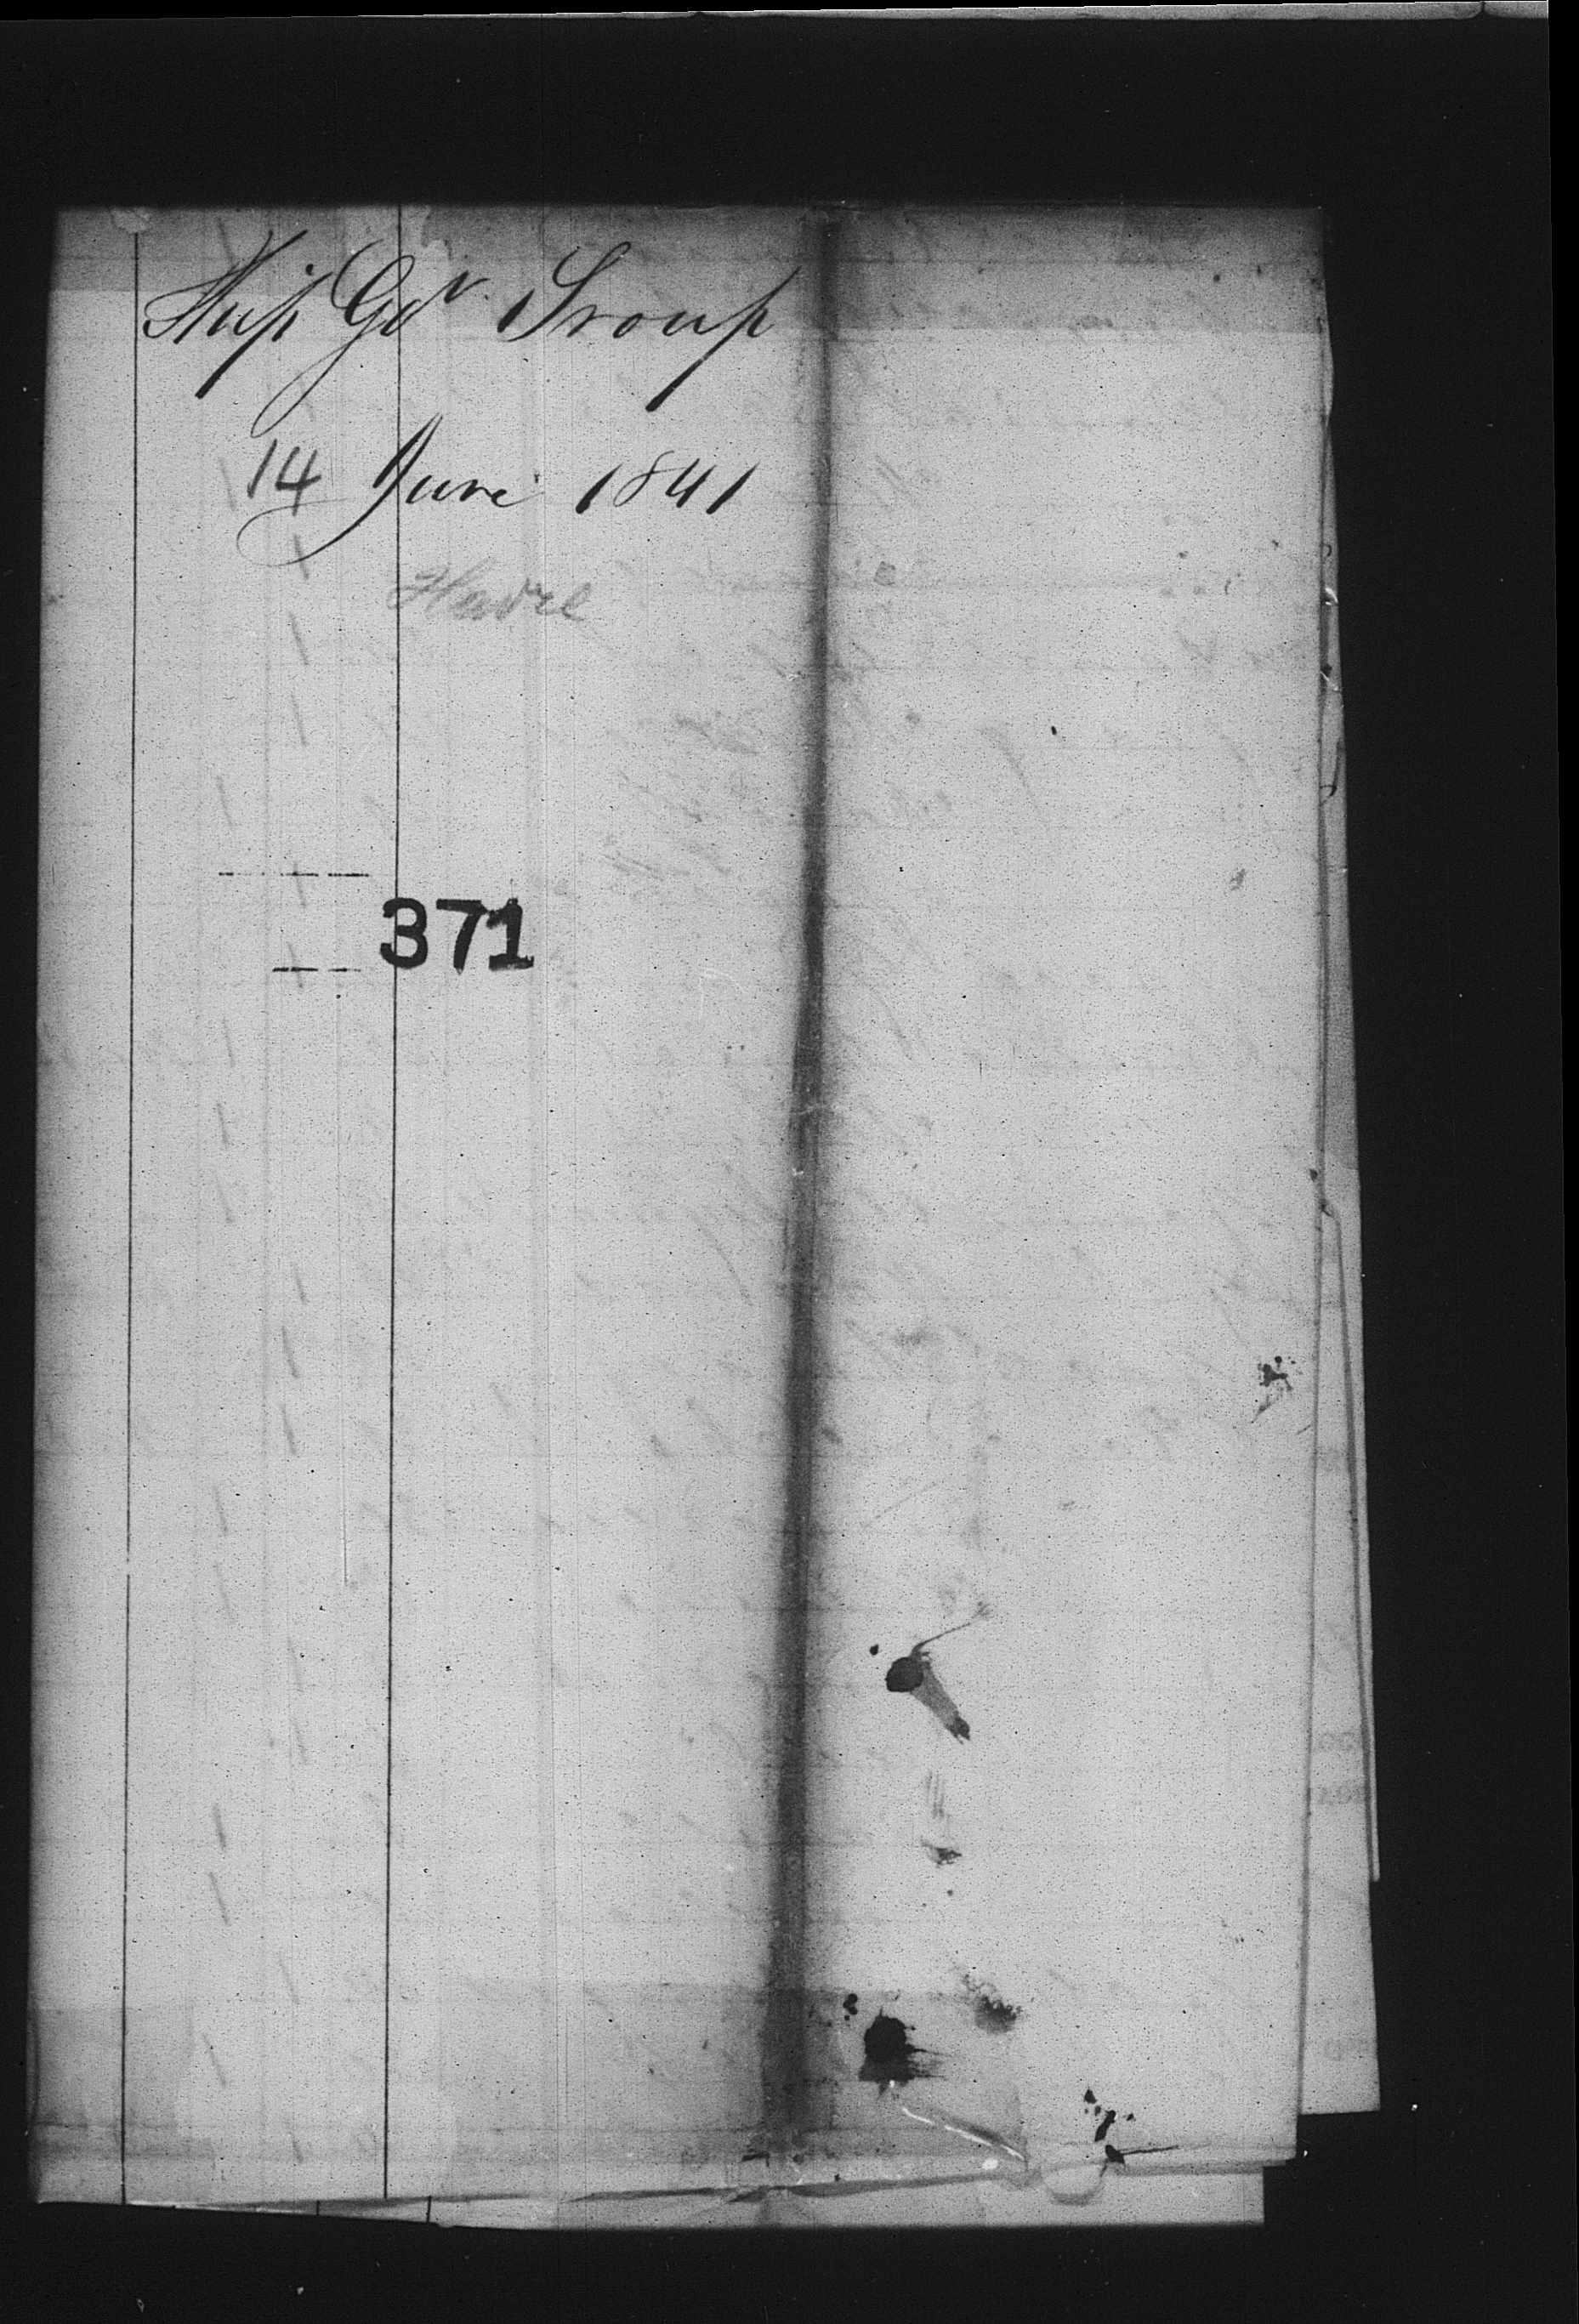 Ship Gov. Troup
14 June 1841
Havre
371